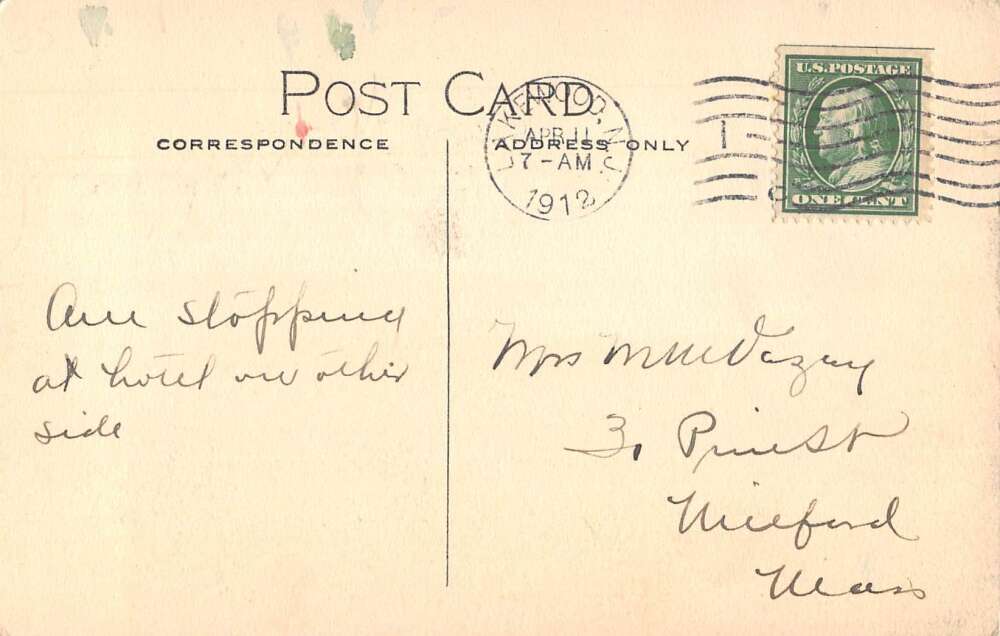 POST CARD
CORRESPONDENCE
ADDRESS ONLY
LAKEWOOD, N.J.
APR 11
7-AM
1912
1
U.S. POSTAGE
ONE CENT
Am stopping
at hotel on other
side
Mrs
Pine St
Milford
Mass